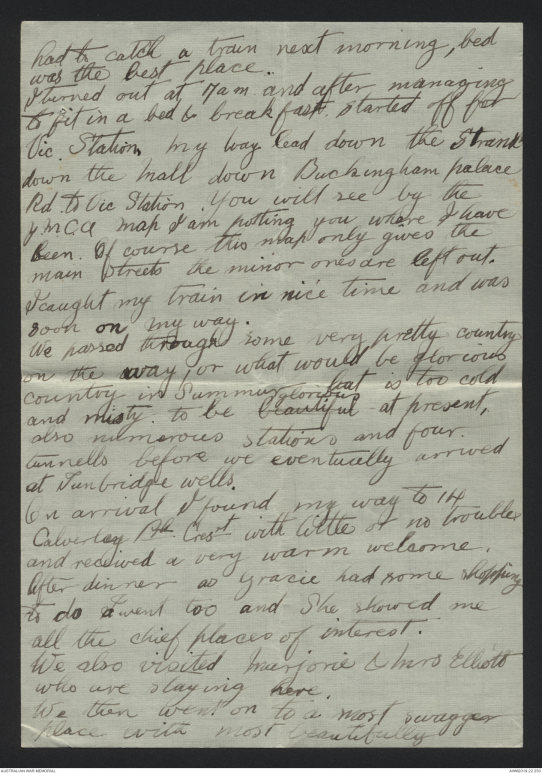 had to catch a train next morning, bed
was the best place.
I turned out at 7 am. and after managing
to fit in a bed & breakfast. started off for
Vic. Station, my way lead down the Strand
down the Mall down Buckingham palace
Rd. to Vic Station. You will see by the
Y.M.C.A map I am posting you where I have
been. Of course this map only gives the
main streets the minor ones are left out.
I caught my train in nice time and was
soon on my way.
We passed through some very pretty country
on the way, or what would be glorious
country in Summer, but is too cold
and misty. to be glorious beautiful at present,
also numerous stations and four
tunnells before we eventually arrived
at Tunbridge wells.
On arrival I found my way to 14
Calverley Pk. Crest with little or no trouble
and received a very warm welcome.
After dinner as Gracie had some shopping
to do I went too and She showed me
all the chief places of interest.
We also visited Marjorie & Mrs Elliott
who are staying here.
We then went on to a most swagger
place with most beautifully
AUSTRALIAN WAR MEMORIAL